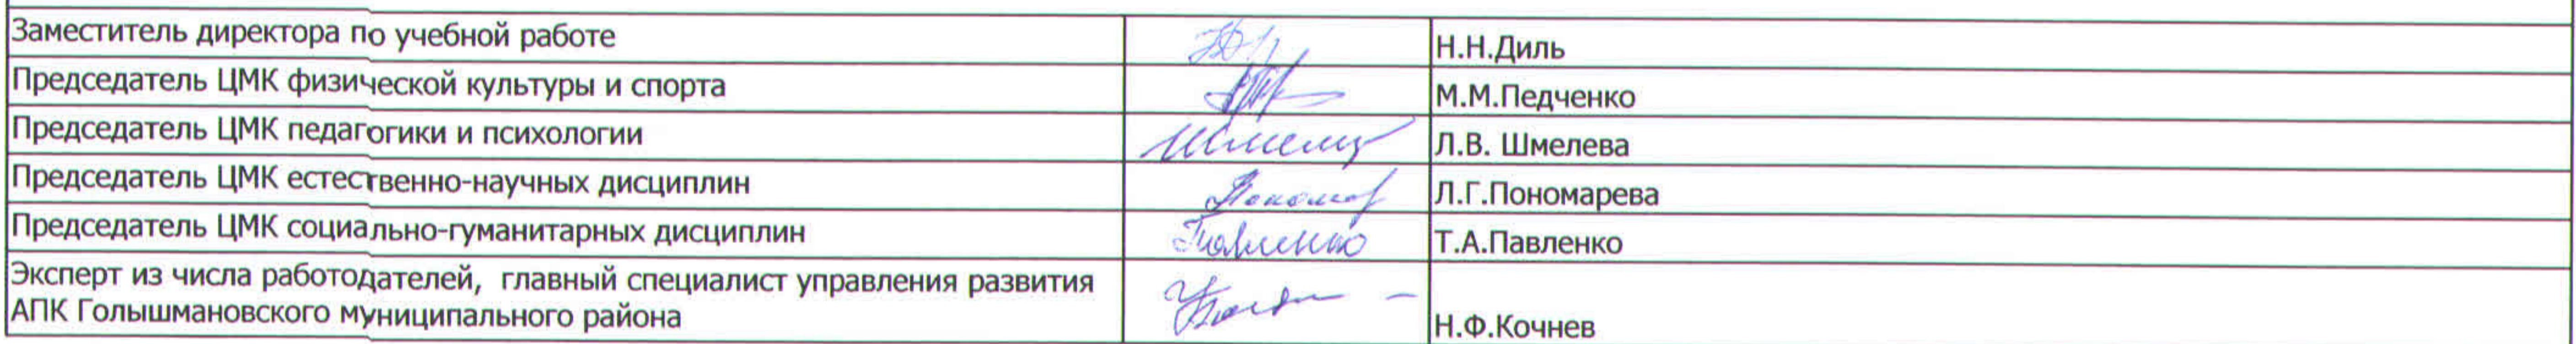 Заместитель директора по учебной работе Н.Н.Диль
Председатель ЦМК физической культуры и спорта М.М.Педченко
Председатель ЦМК педагогики и психологии Л.В. Шмелева
Председатель ЦМК естественно-научных дисциплин Пономар Л.Г.Пономарева
Председатель ЦМК социально-гуманитарных дисциплин Павленко Т.А.Павленко
Эксперт из числа работодателей, главный специалист управления развития
АПК Голышмановского муниципального района Н.Ф.Кочнев